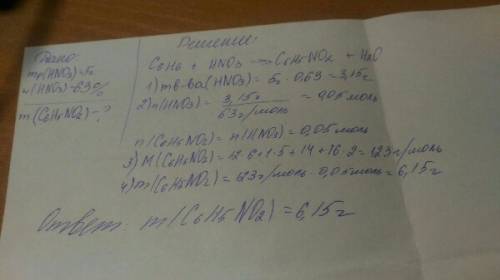 Дано:
mр(HNO3)=5г
w(HNO3)=63%
m(C6H5NO2)-?
Решение:
C6H6 + HNO3 → C6H5NO2 + H2O
1) mв-ва(HNO3) = 5г · 0,63 = 3,15г
2) n(HNO3) = 3,15г / 63г/моль = 0,05 моль
n(C6H5NO2) = n(HNO3) = 0,05 моль
3) M(C6H5NO2) = 12·6+1·5+14+16·2 = 123г/моль
4) m(C6H5NO2) = 123г/моль · 0,05моль = 6,15г
Ответ: m(C6H5NO2) = 6,15г